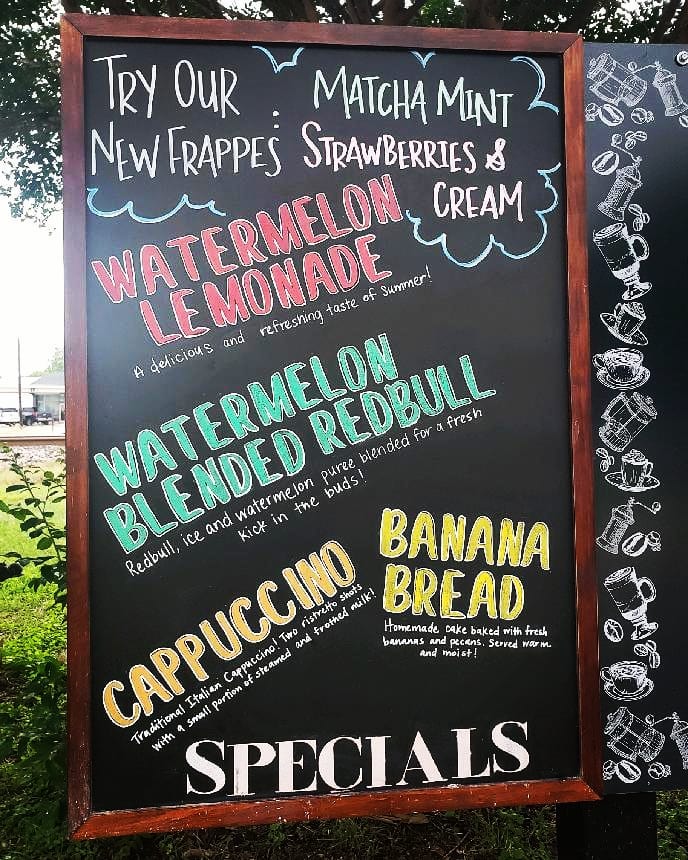 TRY OUR
NEW FRAPPES:
MATCHA MINT
STRAWBERRIES &
CREAM
WATERMELON
LEMONADE
A delicious and refreshing taste of summer!
WATERMELON
BLENDED REDBULL
Redbull, ice and watermelon puree blended for a fresh
kick in the buds!
CAPPUCCINO
Traditional Italian Cappuccino! Two ristretto shots
with a small portion of steamed and frothed milk!
BANANA
BREAD
Homemade cake baked with fresh
bananas and pecans. Served warm
and moist!
SPECIALS